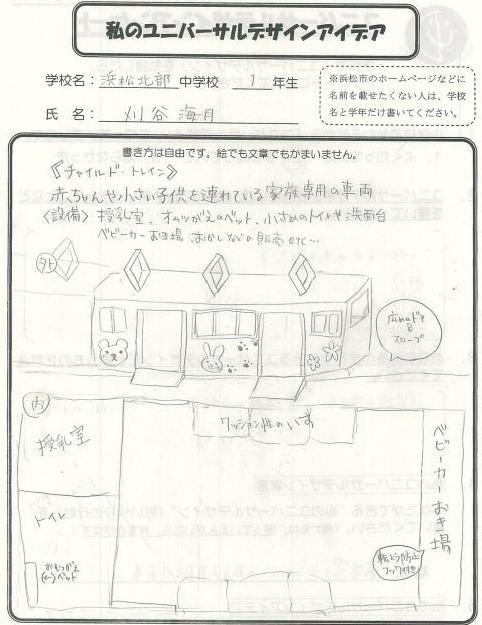 私のユニバーサルデザインアイデア
学校名：浜松北部 中学校 1 年生
氏　名：刈谷 海月
※浜松市のホームページなどに
名前を載せたくない人は、学校
名と学年だけ書いてください。
書き方は自由です。絵でも文章でもかまいません。
《チャイルド・トレイン》
赤ちゃんや小さい子供を連れている家族専用の車両
〈設備〉授乳室、オムツがえのベット、小さめのトイレや洗面台
ベビーカーおき場 おかしなどの販売 etc…
外
広めのドア
&
スロープ
内
授乳室
クッション性のいす
ベビーカーおき場
トイレ
おむつがえ
ベット
転とう防止
フック付き